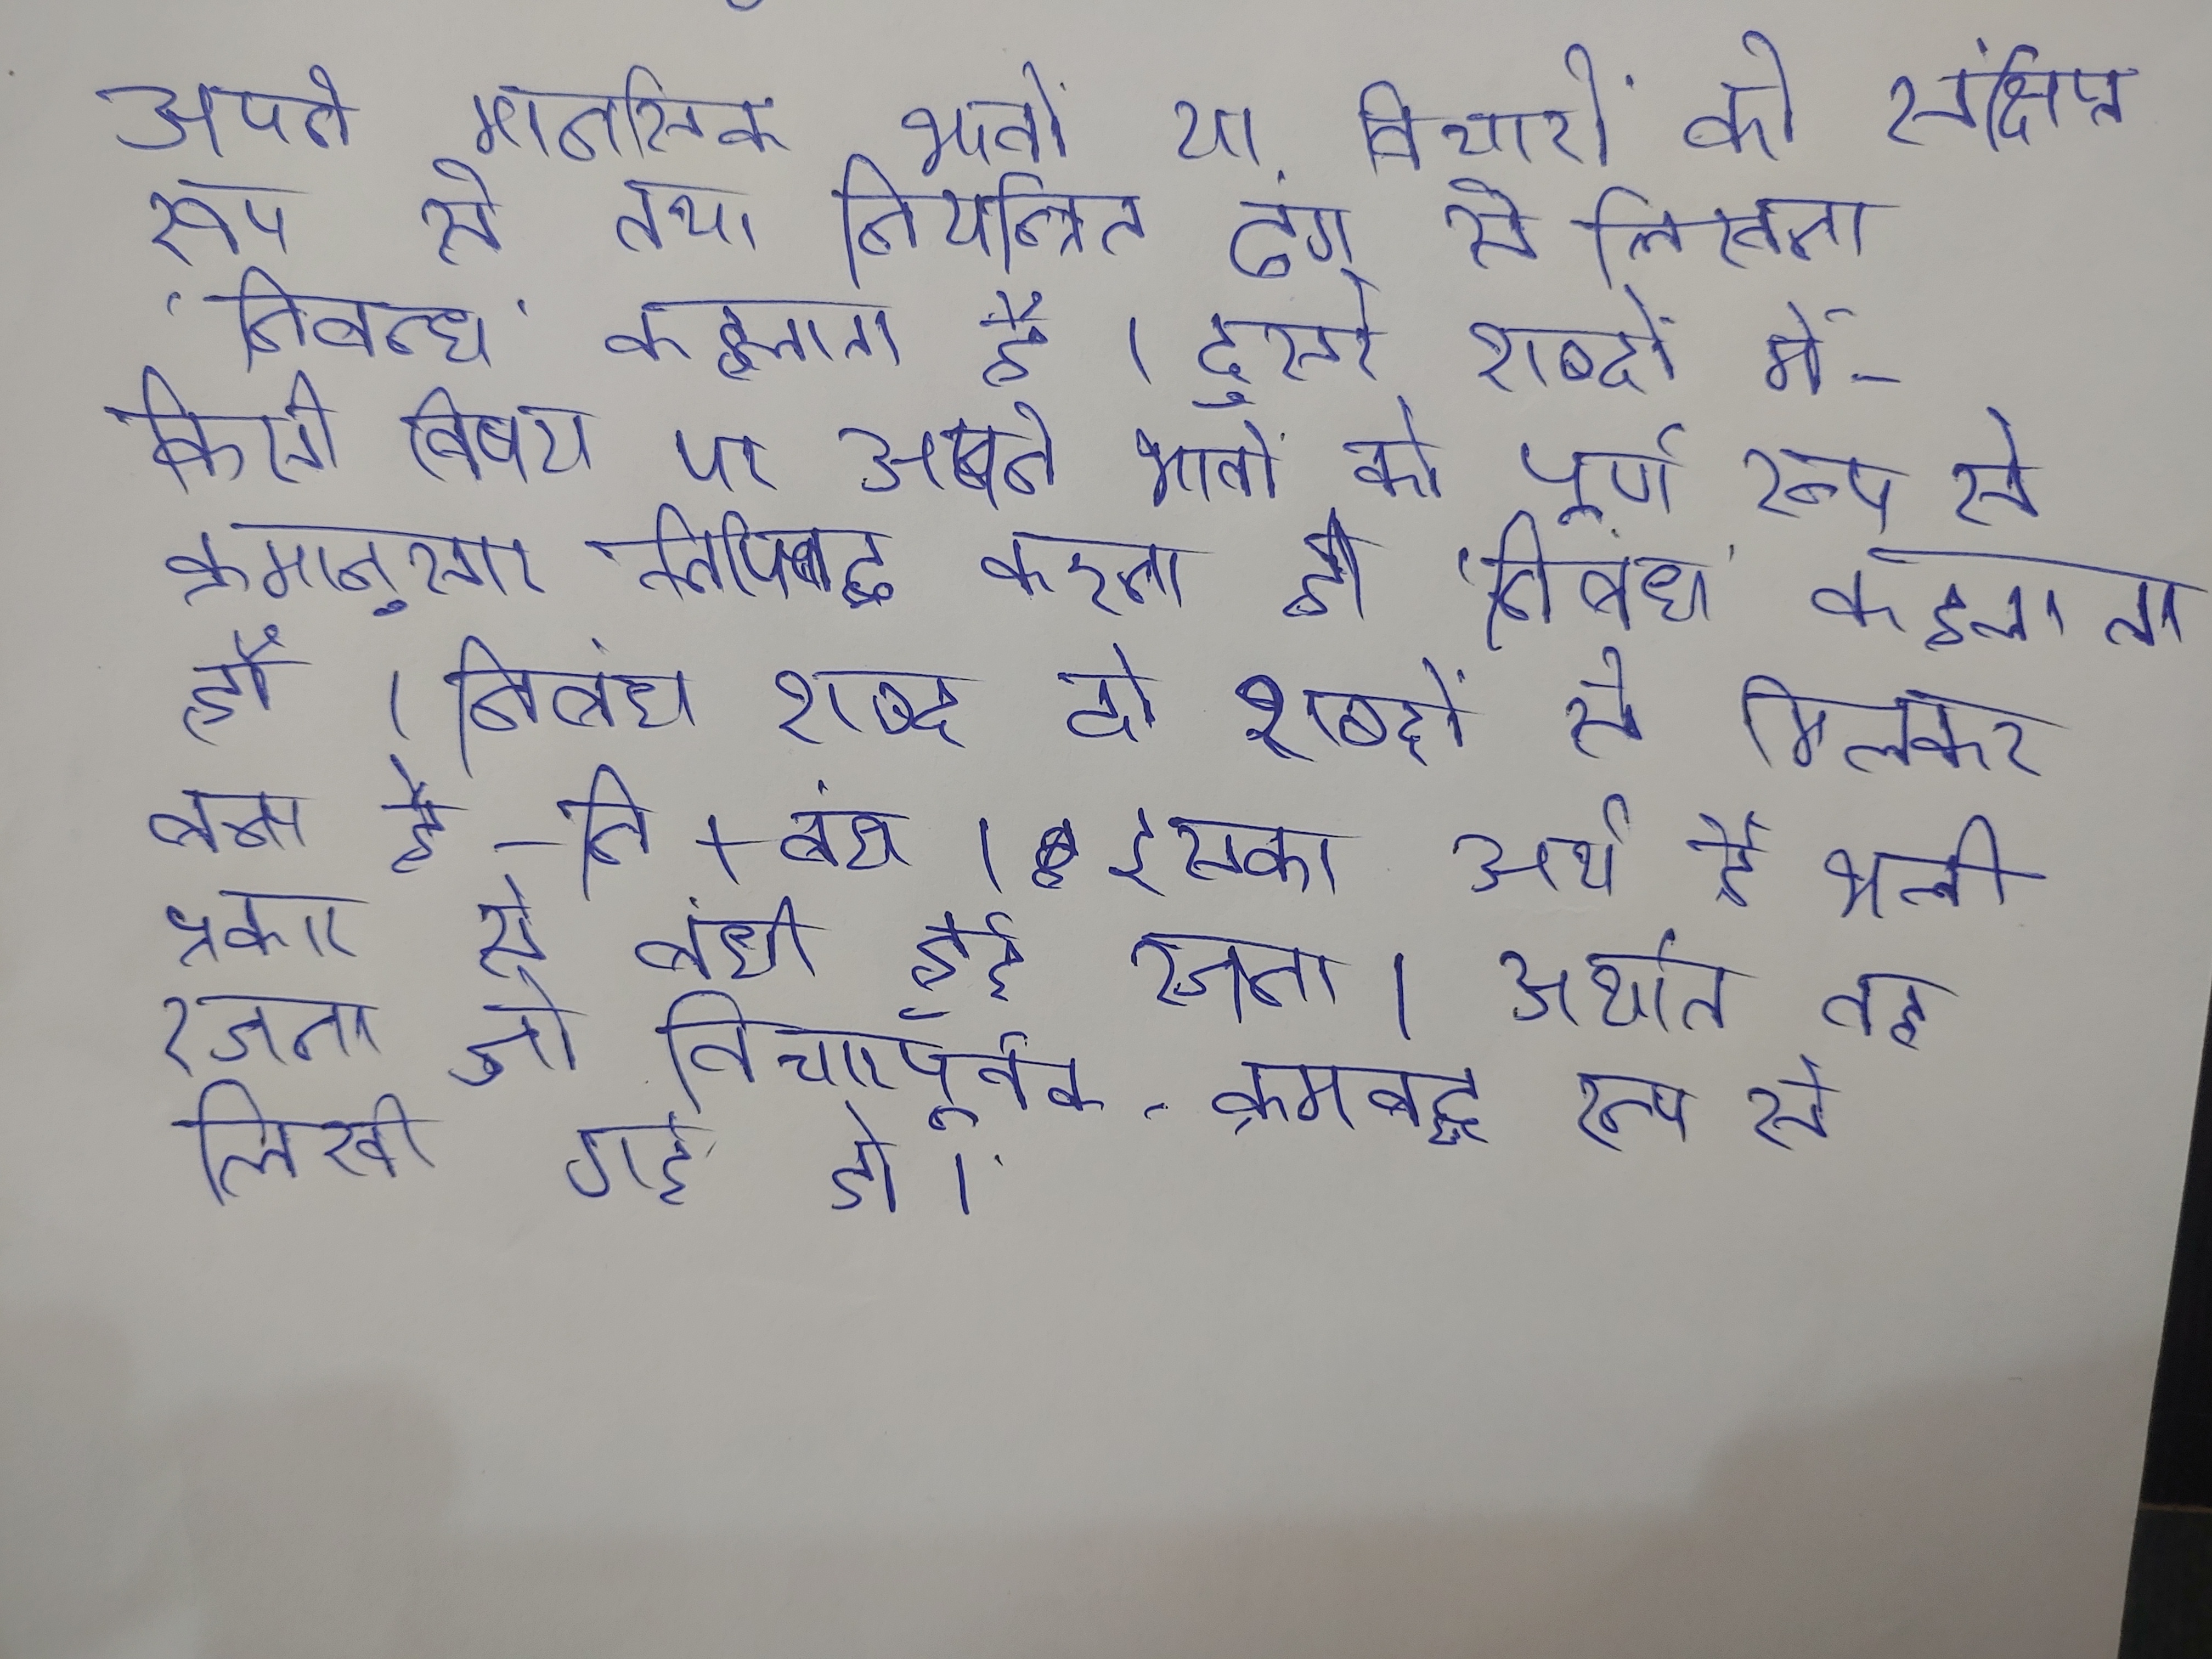 अपने मानसिक भावों या विचारों को संक्षिप्त
रूप से तथा नियन्त्रित ढंग से लिखना
'निबन्ध' कहलाता है । दुसरे शब्दों में-
किसी विषय पर अपने भावों को पूर्ण रूप से
क्रमानुसार लिपिबद्ध करना ही 'निबंध' कहलाता
है । निबंध शब्द दो शब्दों से मिलकर
बना है - नि + बंध । इसका अर्थ है भली
प्रकार से बंधी हुई रजना । अर्थात वह
रजना जो विचारपूर्वक, क्रमबद्ध रूप से
लिखी गई हो ।